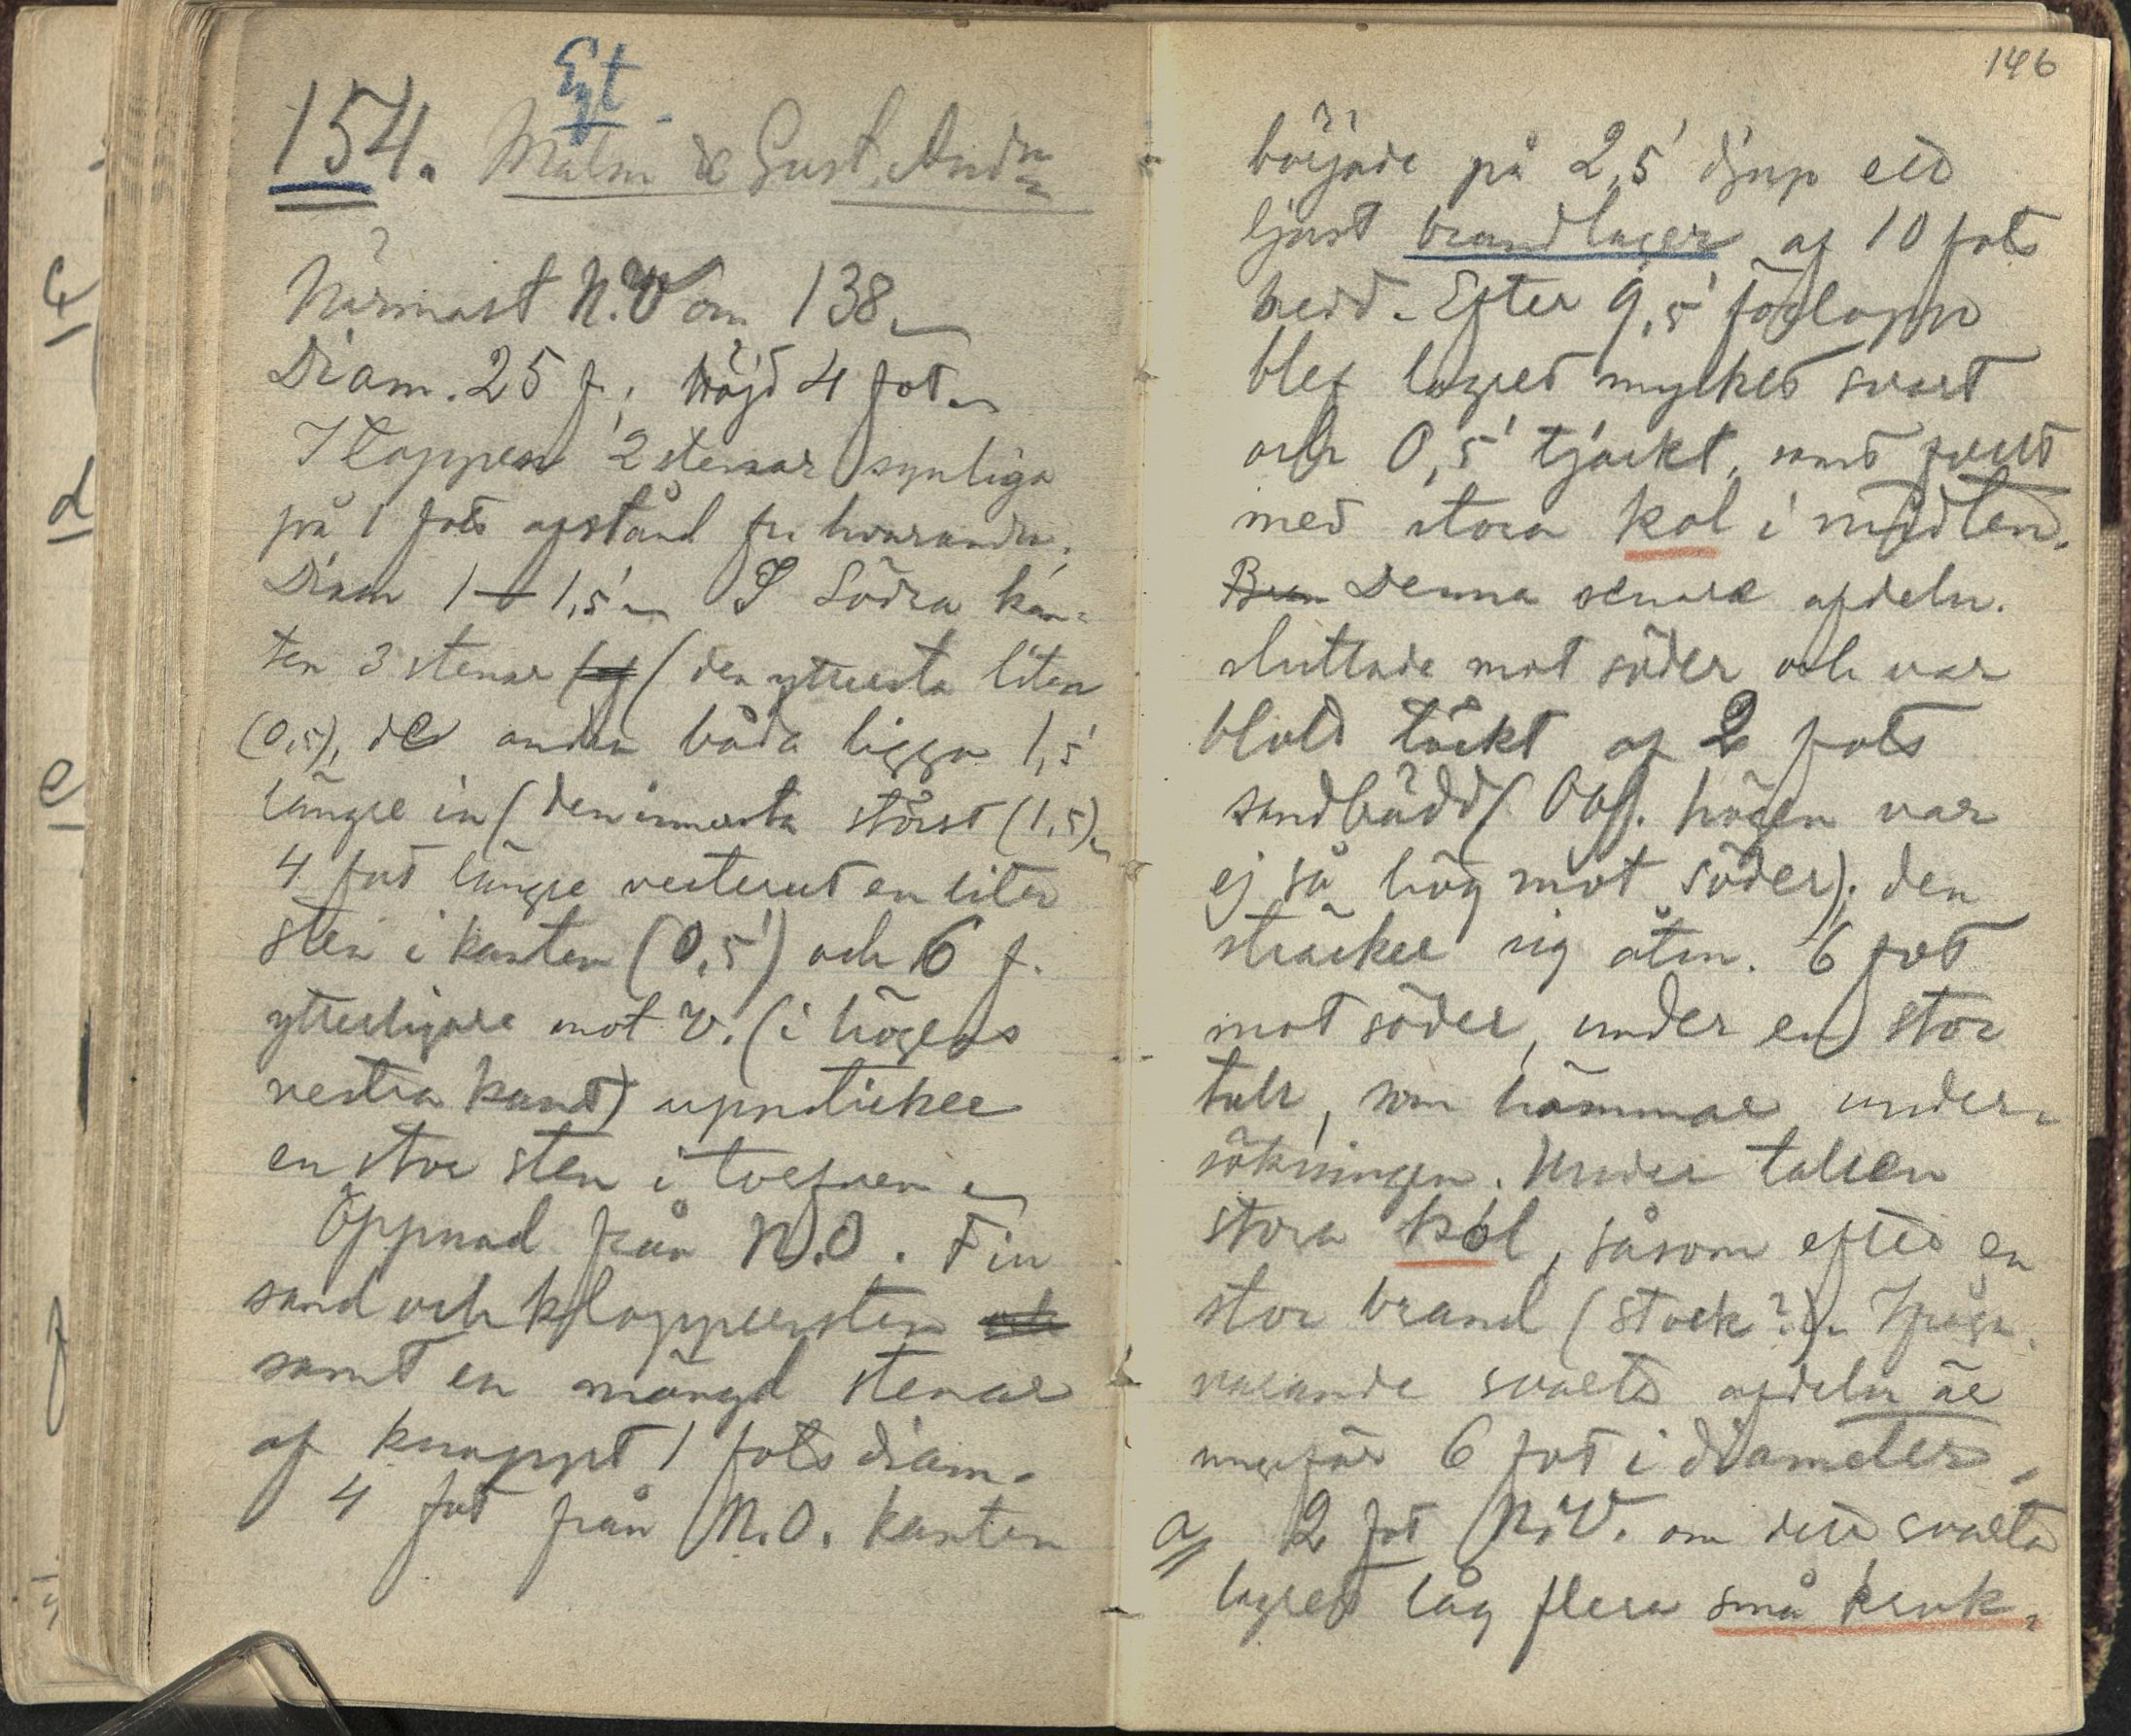 154.
Malm & Gust. And:n
Närmast N.V om 138.
Diam. 25 f.; höjd 4 fot.
I toppen 2 stenar synliga
på 1 fots afstånd fr. hvarandra,
Diam 1–1,5'. I Södra kan-
ten 3 stenar (den yttersta liten
(0,5), de andra båda ligga 1,5'
längre in (den innersta störst (1,5).
4 fot längre vesterut en liten
sten i kanten (0,5') och 6 f.
ytterligare mot V. (i högens
vestra kant) uppsticker
en stor sten i torfven.
Öppnad från N.O. Fin
sand och klappersten och
samt en mängd stenar
af knappt 1 fots diam.
4 fot från N.O. kanten
c
d
e
f
146
började på 2,5' djup ett
ljust brandlager af 10 fots
bredd. Efter 9,5' förlopp
blef lagret mycket svart
och 0,5' tjockt, samt fullt
med stora kol i midten.
Bran Denna senare afdeln.
sluttade mot söder och var
blott täckt af 2 fots
sandbädd (Obs. högen var
ej så hög mot söder); den
sträcker sig åtm. 6 fot
mot söder, under en stor
tall, som hämmar under-
sökningen. Under tallen
stora kol, såsom efter en
stor brand (stock?). Ifråga-
varande svarta afdeln är
ungefär 6 fot i diameter.
a 2 fot N.V. om det svarta
lagret låg flera små kruk-